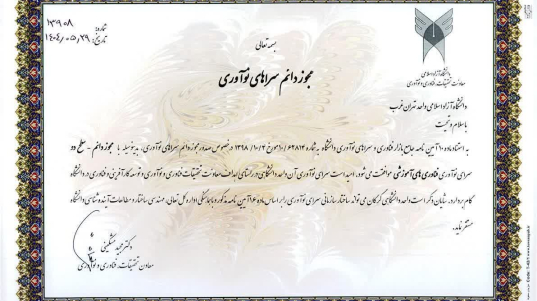 شماره: ۱۳۹۰۸
تاریخ: ۱۴۰۴/۰۵/۲۹
دانشگاه آزاد اسلامی
معاونت تحقیقات، فناوری و نوآوری
بسمه تعالی
مجوز دائم سرای نوآوری
دانشگاه آزاد اسلامی واحد تهران غرب
با سلام و تحیت
به استناد ماده ۱۰ آیین نامه جامع بازار فناوری و سراهای نوآوری دانشگاه به شماره ۱۰/۶۴۸۱۴ مورخ ۱۳۹۸/۱۰/۴ درخصوص صدور مجوز دائم سراهای نوآوری، بدینوسیله با مجوز دائم - سطح دو
سرای نوآوری فناوری های آموزشی موافقت می شود. امید است سرای نوآوری آن واحد دانشگاهی در راستای اهداف معاونت تحقیقات فناوری و نوآوری و توسعه کارآفرینی و فناوری در دانشگاه
گام بردارد. شایان ذکر است واحد دانشگاهی می تواند ساختار سازمانی سرای نوآوری را بر اساس ماده ۱۶ آیین نامه مذکور و با هماهنگی اداره کل تعالی، مهندسی ساختار و مطالعات آینده شناسی دانشگاه
مستقر نماید.
دکتر
معاون تحقیقات، فناوری و نوآوری